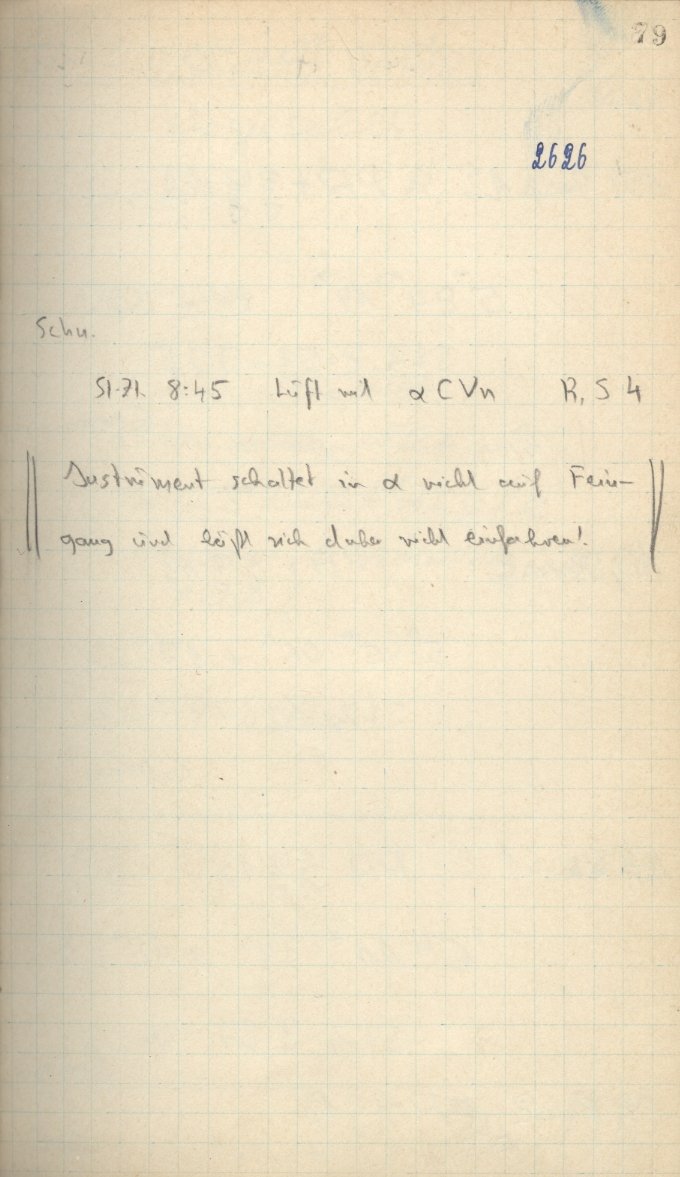 79
2626
Schu.
St.Zt. 8:45 Luft mit α CVn R, S 4
Instrument schaltet in α nicht auf Fein-
gang und läßt sich daher nicht einfahren!